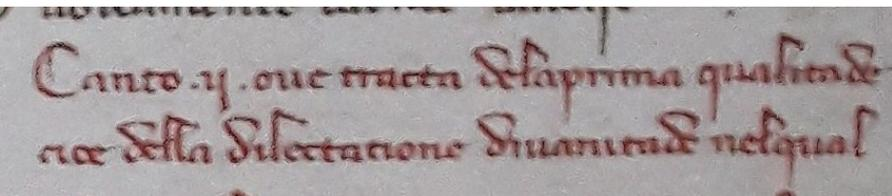 Canto .ij. oue tracta delaprima qualitade
cioe della dilectatione diuanitade nelqual